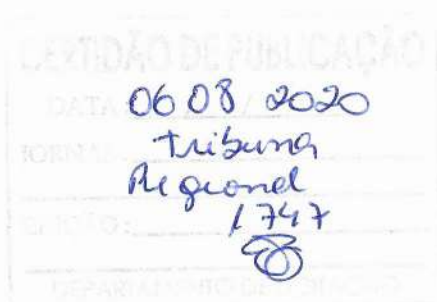 CERTIDÃO DE PUBLICAÇÃO
DATA: 06 08 / 2020
JORNAL: Tribuna
Regional
EDIÇÃO: 1747
DEPARTAMENTO DE